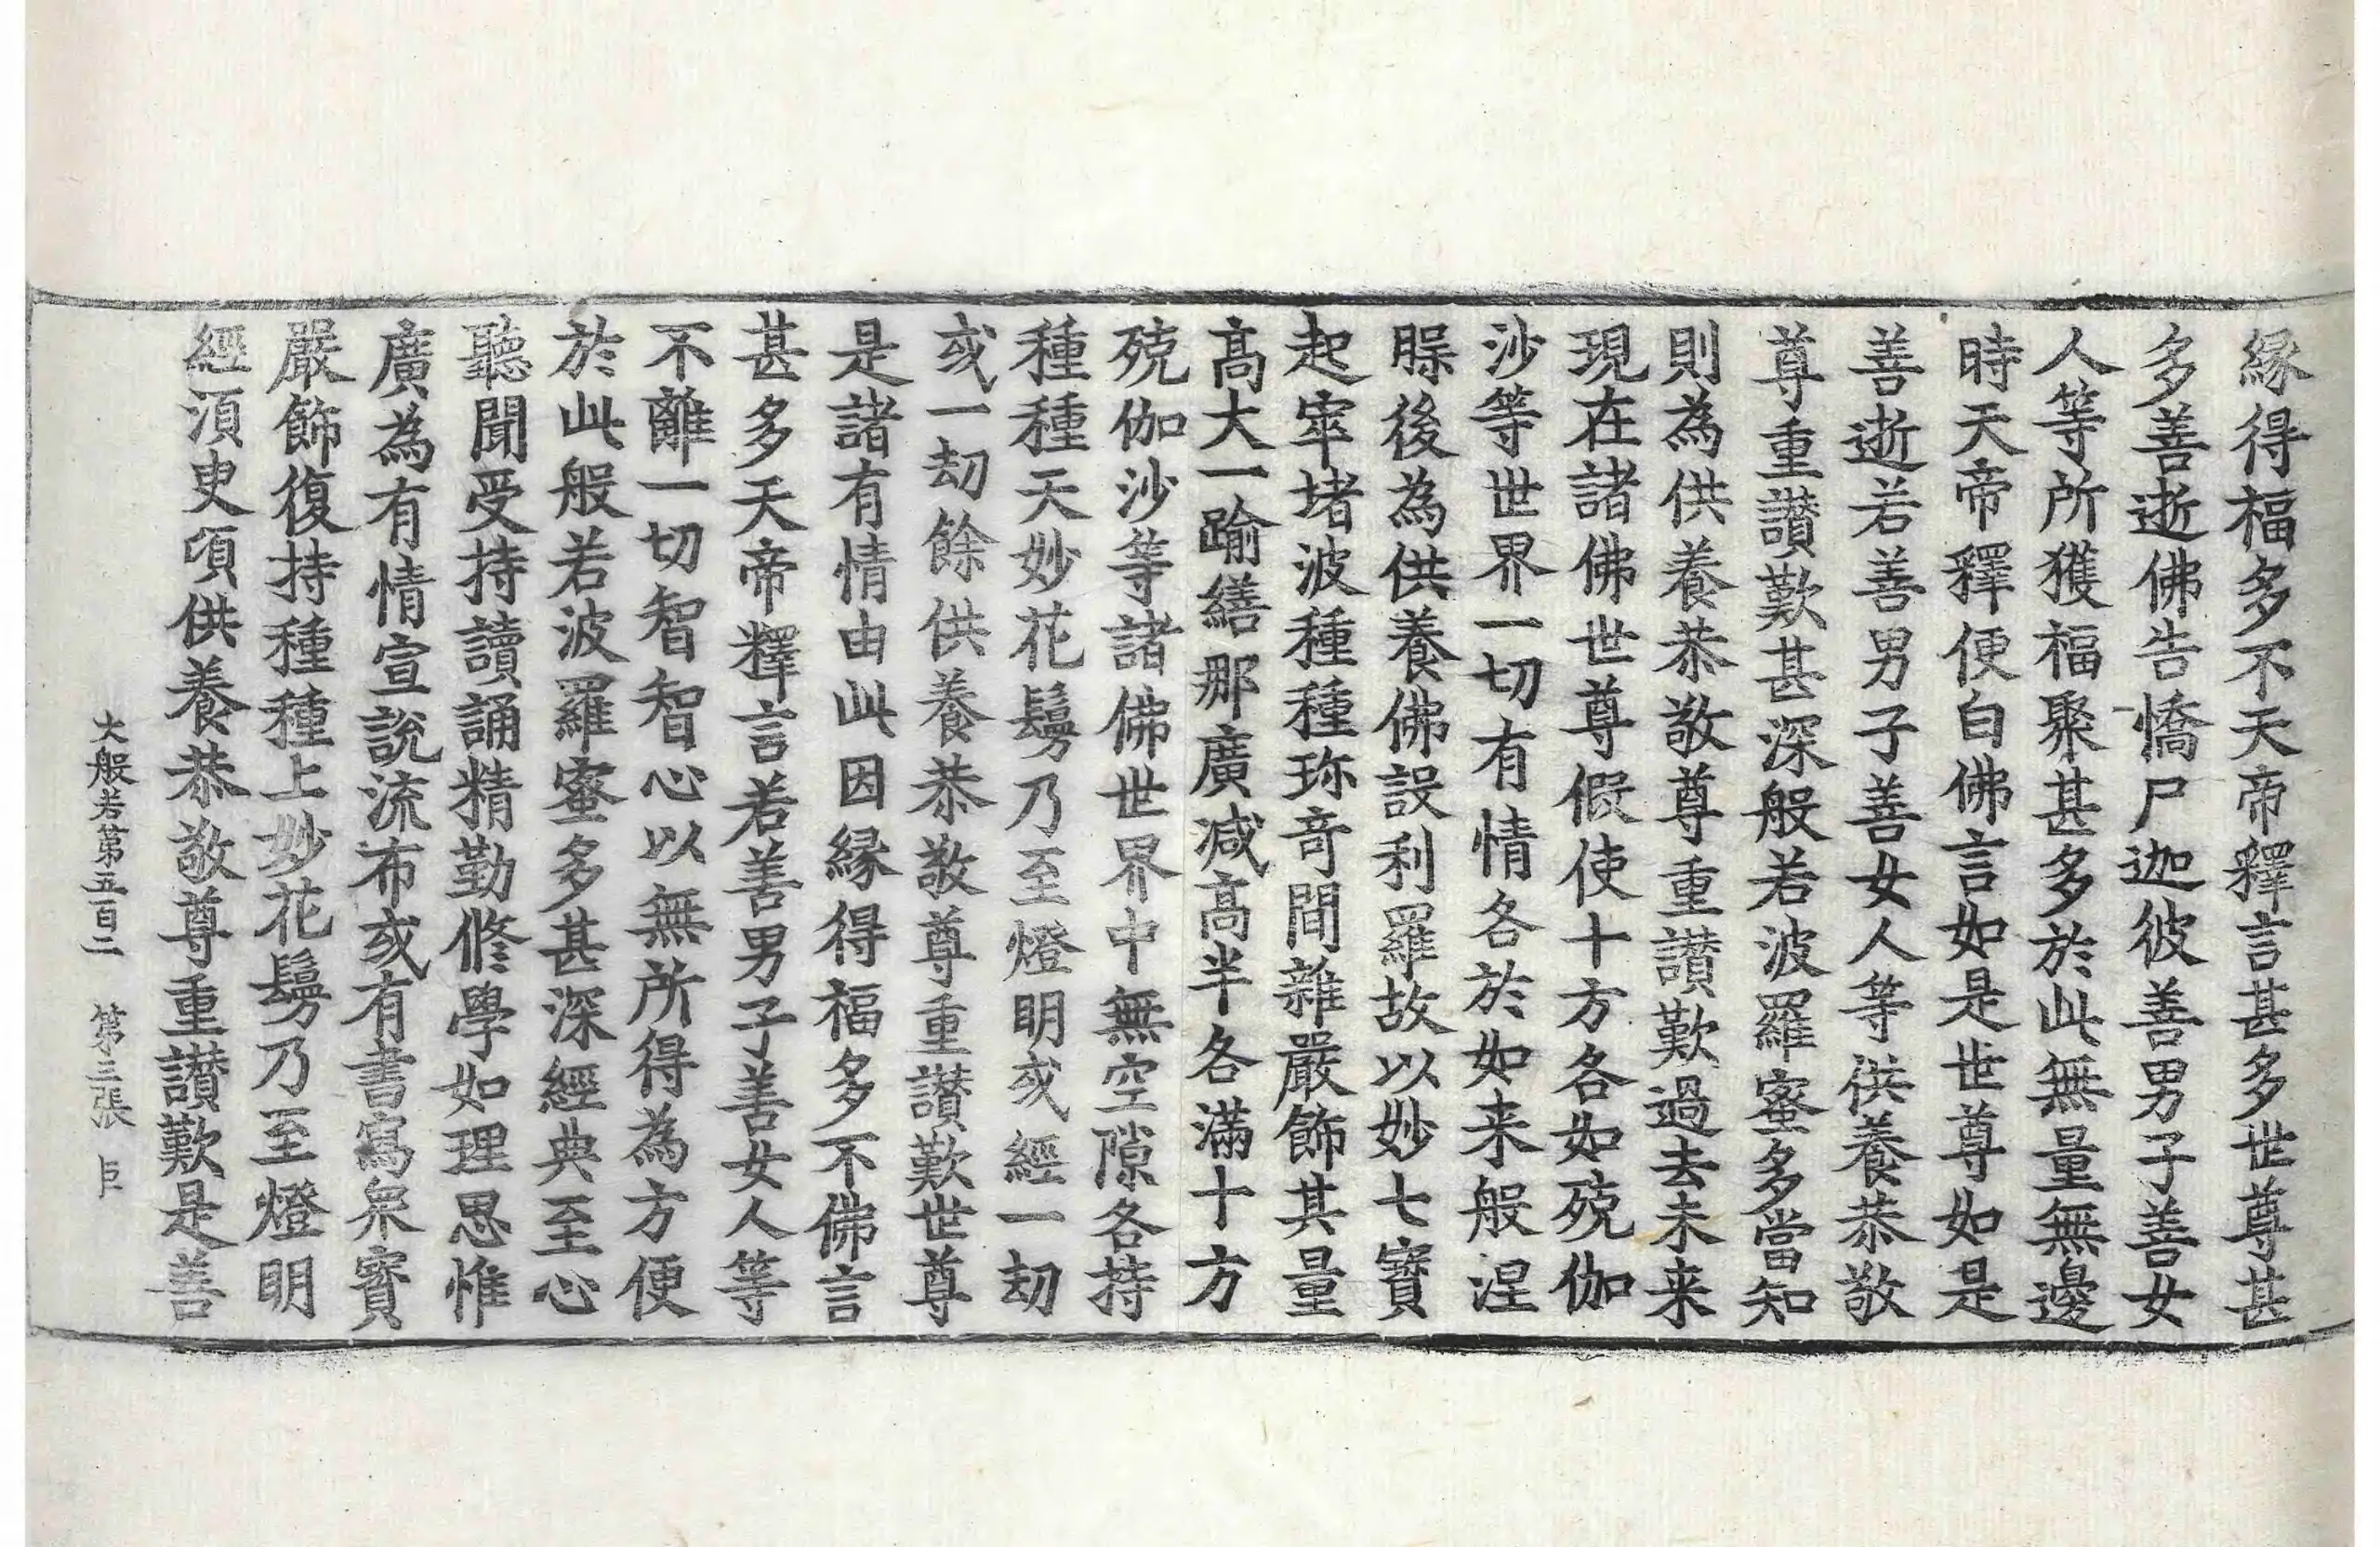 縁得福多不天帝釋言甚多世尊甚
多善逝佛告憍尸迦彼善男子善女
人等所獲福聚甚多於此無量無邊
時天帝釋便白佛言如是世尊如是
善逝若善男子善女人等供養恭敬
尊重讃歎甚深般若波羅蜜多當知
則為供養恭敬尊重讃歎過去未来
現在諸佛世尊假使十方各如殑伽
沙等世界一切有情各於如来般涅
槃後為供養佛設利羅故以妙七寶
起窣堵波種種珎奇間雜嚴飾其量
髙大一踰繕那廣减髙半各滿十方
殑伽沙等諸佛世界中無空隙各持
種種天妙花鬘乃至燈明或經一劫
或一劫餘供養恭敬尊重讃歎世尊
是諸有情由此因縁得福多不佛言
甚多天帝釋言若善男子善女人等
不離一切智智心以無所得為方便
於此般若波羅蜜多甚深經典至心
聽聞受持讀誦精勤修學如理思惟
廣為有情宣說流布或有書寫衆寶
嚴飾復持種種上妙花鬘乃至燈明
經須臾頃供養恭敬尊重讃歎是善
大般若第五百二　第三張　臣